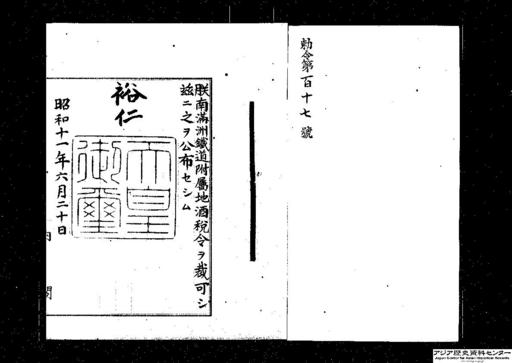 勅令第百十七號
朕南滿洲鐵道附屬地酒稅令ヲ裁可シ
茲ニ之ヲ公布セシム
裕仁
天皇
御璽
昭和十一年六月二十日
内閣
アジア歴史資料センター
Japan Center for Asian Historical Records